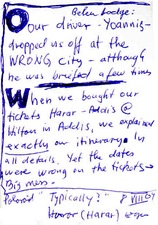 Belen Lodge:
Our driver - Yoannis -
dropped us off at the
WRONG city - although
he was briefed a few times
When we bought our
tickets Harar - Addis @
Hilton in Addis, we explained
exactly our itinerary in
all details. Yet the dates
were wrong on the tickets →
Big mess.
Polaroid Typically! 8 VIII 07
Horror (Harar)